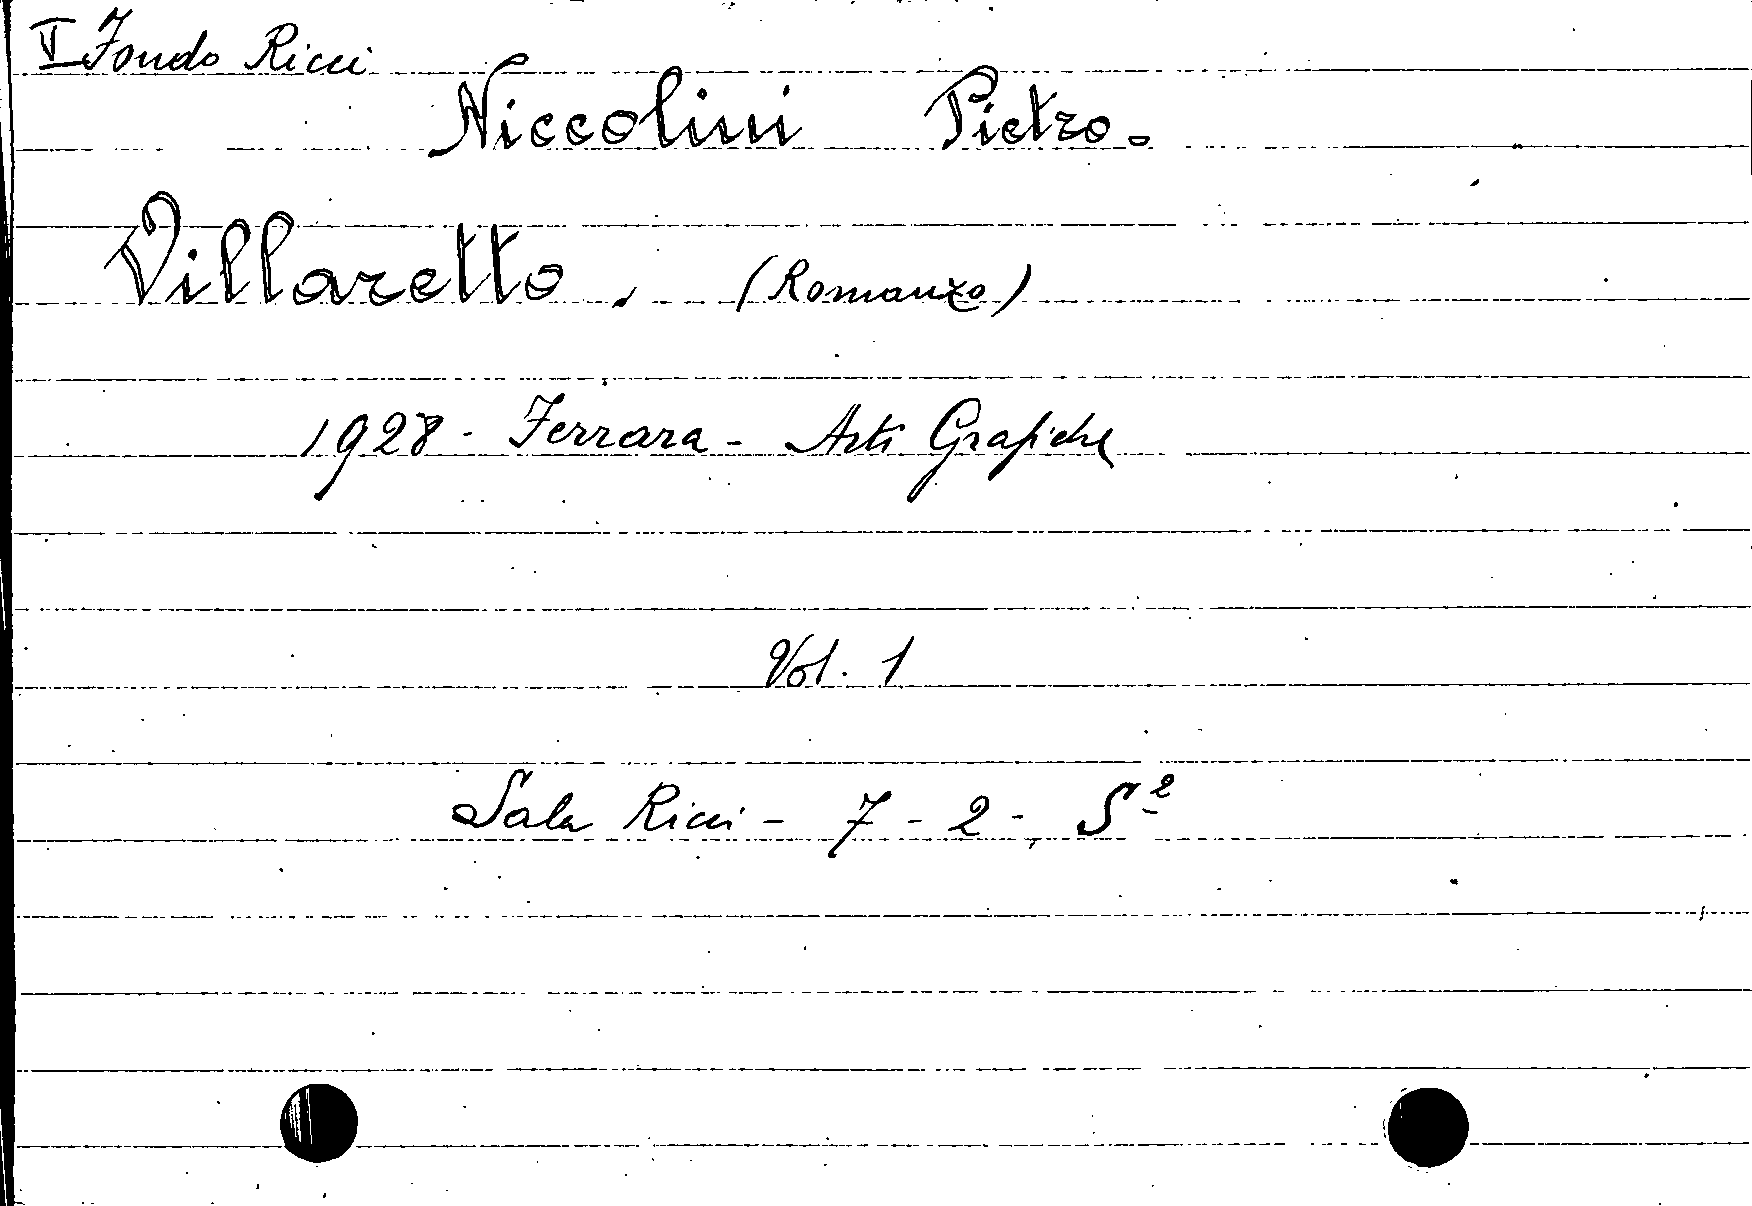 V Fondo Ricci
Niccolini Pietro.
Villaretto. (Romanzo)
1928 - Ferrara - Arti Grafiche
Vol. 1
Sala Ricci - 7 - 2 - S²